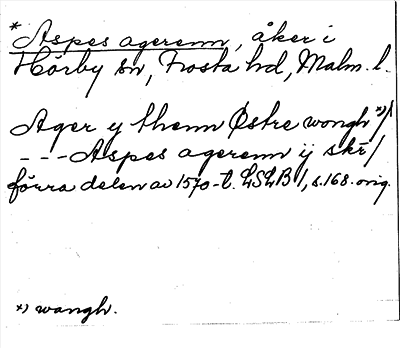 *Aspes agerenn, åker i
Hörby sn, Frosta hd, Malm. l.
Ager y thenn Østre wongh *)/
- - - Aspes agerenn ij skr/
förra delen av 1570-t. LSLB 1, s. 168. orig.
*) wangh.